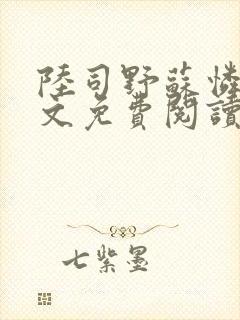 陸司野蘇憐
文免費閱讀
七紫墨